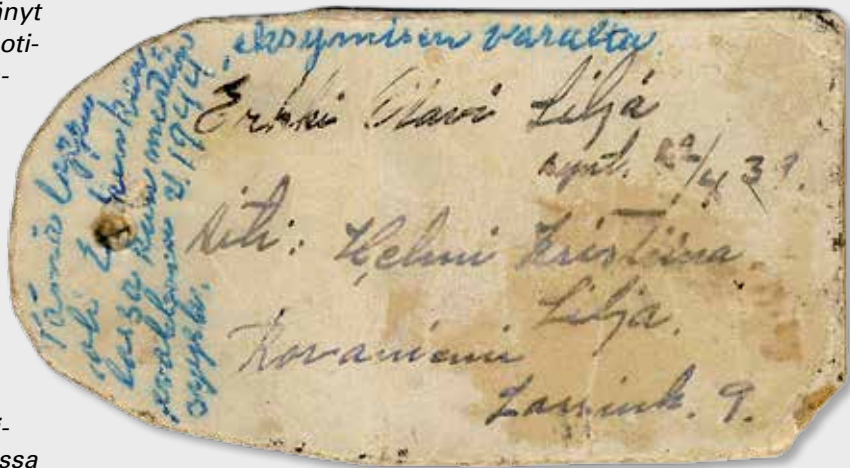 änyt
oti-
-
i-
ssa
Tämä lappu
oli kau-
lassa kun mentiin
evakkoon v. 1944
syysk.
, eksymisen varalta.
Erkki Olavi Lilja
synt. 39.
Äiti: Helmi Kristiina
Lilja.
Rovaniemi
9.